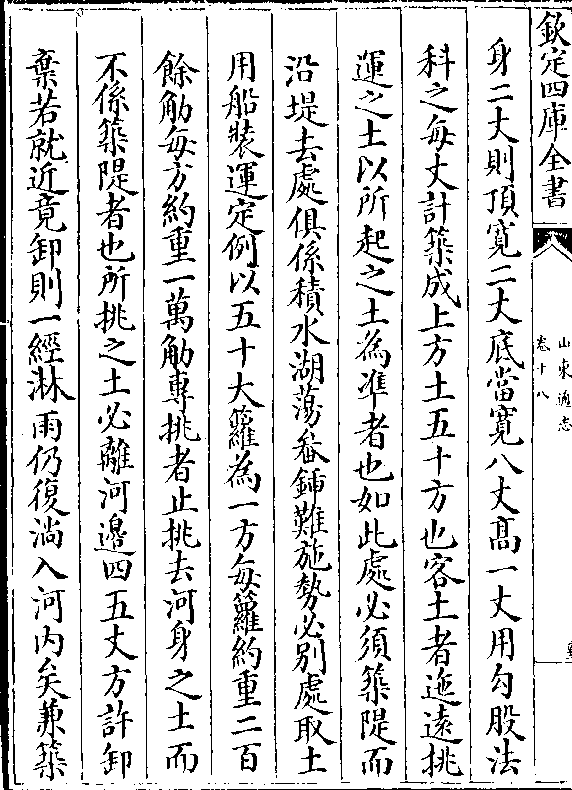 欽定四庫全書
山東通志
卷十八
身二丈則頂寬二丈底當寬八丈髙一丈用勾股法
科之每丈計築成上方土五十方也客土者迤遠挑
運之土以所起之土為準者也如此處必須築隄而
沿堤去處俱係積水湖蕩畚鍤難施勢必别處取土
用船裝運定例以五十大籮為一方每籮約重二百
餘觔每方約重一萬觔專挑者止挑去河身之土而
不係築隄者也所挑之土必離河邉四五丈方許卸
棄若就近竟卸則一經淋雨仍復淌入河内矣兼築